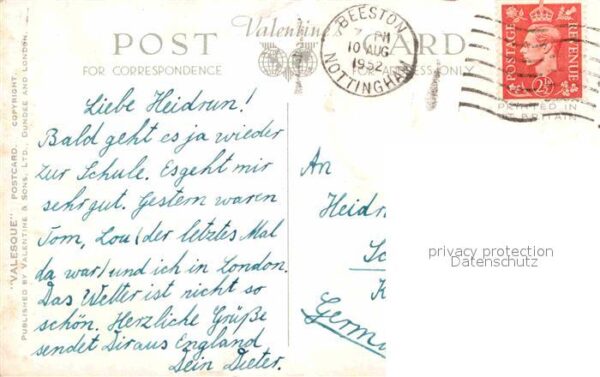 POST CARD
Valentine's
FOR CORRESPONDENCE
FOR ADDRESS ONLY
BEESTON
7 PM
10 AUG
1952
NOTTINGHAM
POSTAGE
REVENUE
2½
PRINTED IN
GT BRITAIN
"VALESQUE" POSTCARD. COPYRIGHT.
PUBLISHED BY VALENTINE & SONS, LTD., DUNDEE AND LONDON.
Liebe Heidrun!
Bald geht es ja wieder
zur Schule. Es geht mir
sehr gut. Gestern waren
Tom, Lou (der letztes Mal
da war) und ich in London.
Das Wetter ist nicht so
schön. Herzliche Grüße
sendet Dir aus England
Dein Dieter.
An
Heidru
Sc
K
Germa
privacy protection
Datenschutz